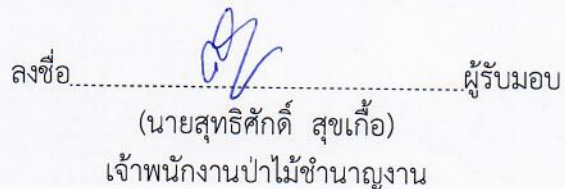 ลงชื่อ..............................................ผู้รับมอบ
(นายสุทธิศักดิ์ สุขเกื้อ)
เจ้าพนักงานป่าไม้ชำนาญงาน